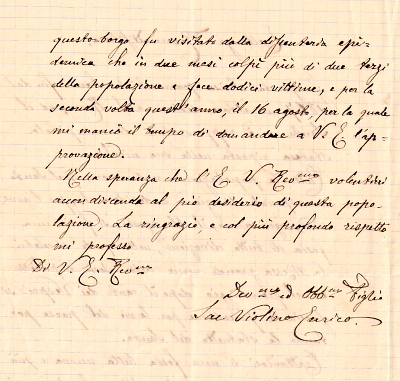 questo borgo fu visitato dalla dissenteria epi-
demica che in due mesi colpì più di due terzi
della popolazione e fece dodici vittime, e per la
seconda volta quest'anno, il 16 agosto, per la quale
mi mancò il tempo di domandare a V. E. l'ap-
provazione.
Nella speranza che l'E. V. Rev.ma volentieri
accondiscenda al pio desiderio di questa popo-
lazione, La ringrazio, e col più profondo rispetto
mi professo
Di V. E. Rev.ma
Dev.mo ed Obb.mo Figlio
Sac. Violino Enrico.